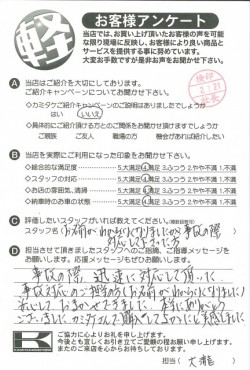 軽
お客様アンケート
当店では、お買い上げ頂いたお客様の声を可能
な限り現場に反映し、お客様により良い商品と
サービスを提供する事に努めています。
大変お手数ですが是非お声をお聞かせ下さい。
A 当店はご紹介を大切にしております。
ご紹介キャンペーンについてお聞かせ下さい。
◇カミタケご紹介キャンペーンのご説明はありましたでしょうか
はい いいえ
◇具体的にご紹介頂ける方とのご関係をお聞かせ頂けますでしょうか
ご親族 ご友人 職場の方 機会があれば紹介したい
B 当店を実際にご利用になった印象をお聞かせ下さい。
◇総合的な満足度 5大満足 4満足 3ふつう 2やや不満 1不満
◇スタッフの対応 5大満足 4満足 3ふつう 2やや不満 1不満
◇お店の雰囲気、清掃 5大満足 4満足 3ふつう 2やや不満 1不満
◇納車時のお車の状態 5大満足 4満足 3ふつう 2やや不満 1不満
C 評価したいスタッフがいれば教えてください。
スタッフ名(お名前がわからなくなりましたが事故の際
対応して下さった方
D 担当させて頂きましたスタッフへのご指摘、ご指導メッセージを
お願いします。応援メッセージもぜひお願いします。
事故の際、迅速に対応して頂いて
事故対応のご担当の方もお名前がわからなくなりました
K
ご協力に心よりお礼を申し上げます。
今後とも宜しくお引き立てご愛顧の程お願い申し上げます。
またのご来店を心からお待ちしております。
担当(